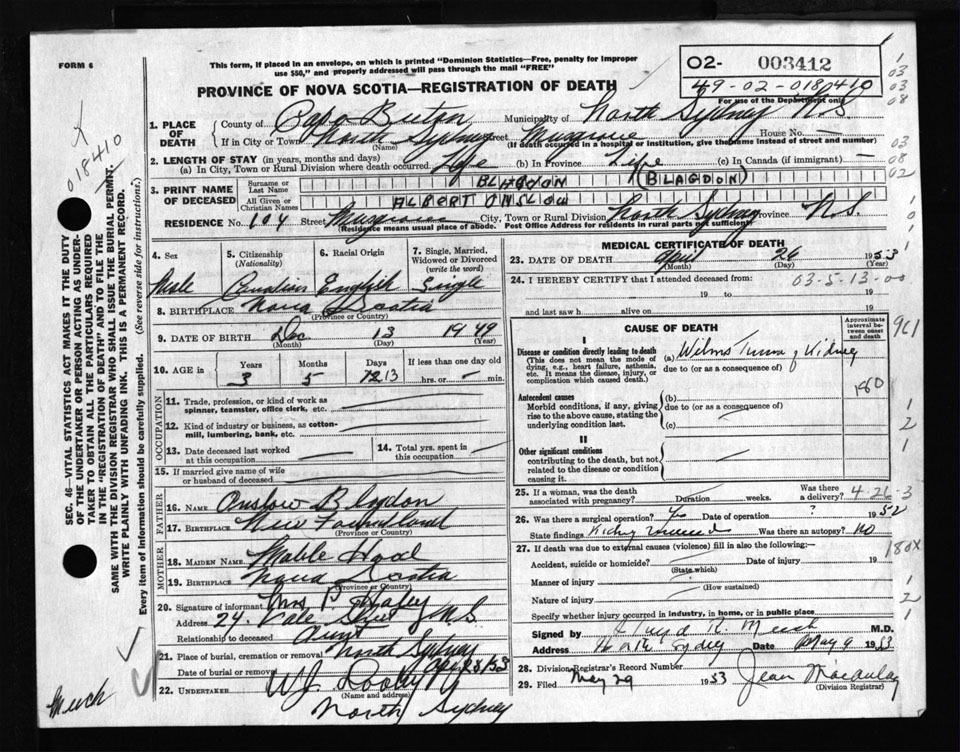 FORM 6
This form, if placed in an envelope, on which is printed "Dominion Statistics—Free, penalty for improper
use $50," and properly addressed will pass through the mail "FREE"
PROVINCE OF NOVA SCOTIA—REGISTRATION OF DEATH
02- 003412
49-02-018410
For use of the Department only
018410
SEC. 46—VITAL STATISTICS ACT MAKES IT THE DUTY
OF THE UNDERTAKER OR PERSON ACTING AS UNDER-
TAKER TO OBTAIN ALL THE PARTICULARS REQUIRED
IN THE "REGISTRATION OF DEATH" AND TO FILE THE
SAME WITH THE DIVISION REGISTRAR WHO SHALL ISSUE THE BURIAL PERMIT.
WRITE PLAINLY WITH UNFADING INK. THIS IS A PERMANENT RECORD.
Every item of information should be carefully supplied. (See reverse side for instructions.)
1. PLACE OF DEATH
County of Cape Breton Municipality of North Sydney N.S
If in City or Town North Sydney Street Musgrave House No. —
(Name) (If death occurred in a hospital or institution, give the name instead of street and number)
2. LENGTH OF STAY (in years, months and days)
(a) In City, Town or Rural Division where death occurred Life (b) In Province Life (c) In Canada (if immigrant) —
3. PRINT NAME OF DECEASED
Surname or Last Name BLAGDON (BLAGDON)
All Given or Christian Names ALBERT ONSLOW
RESIDENCE No. 104 Street Musgrave City, Town or Rural Division North Sydney Province N.S.
(Residence means usual place of abode. Post Office Address for residents in rural parts not sufficient)
4. Sex Male
5. Citizenship (Nationality) Canadian
6. Racial Origin English
7. Single, Married, Widowed or Divorced (write the word) Single
8. BIRTHPLACE Nova Scotia
(Province or Country)
9. DATE OF BIRTH Dec 13 1949
(Month) (Day) (Year)
10. AGE in Years 3 Months 5 Days 13 If less than one day old hrs. or — min.
OCCUPATION
11. Trade, profession, or kind of work as
spinner, teamster, office clerk, etc.
12. Kind of industry or business, as cotton-
mill, lumbering, bank, etc.
13. Date deceased last worked at this occupation
14. Total yrs. spent in this occupation
15. If married give name of wife
or husband of deceased
FATHER
16. NAME Onslow Blagdon
17. BIRTHPLACE New Foundland
(Province or Country)
MOTHER
18. MAIDEN NAME Mable Hood
19. BIRTHPLACE Nova Scotia
(Province or Country)
20. Signature of informant Mrs P.
Address 24 Vale Street N.S.
Relationship to deceased Aunt
21. Place of burial, cremation or removal North Sydney
Date of burial or removal Apr 28/53
22. UNDERTAKER W.J. Dooley
(Name and address)
North Sydney
MEDICAL CERTIFICATE OF DEATH
23. DATE OF DEATH April 26 1953
(Month) (Day) (Year)
24. I HEREBY CERTIFY that I attended deceased from 03-5-13-00
19 to 19
and last saw h alive on 19
CAUSE OF DEATH
Approximate interval between onset and death
I
Disease or condition directly leading to death (a) Wilms Tumor of Kidney
(This does not mean the mode of
dying, e.g., heart failure, asthenia,
etc. It means the disease, injury, or
complication which caused death.)
due to (or as a consequence of)
180
Antecedent causes
Morbid conditions, if any, giving
rise to the above cause, stating the
underlying condition last.
(b)
due to (or as a consequence of)
(c)
II
Other significant conditions
contributing to the death, but not
related to the disease or condition
causing it.
25. If a woman, was the death
associated with pregnancy? Duration weeks. Was there a delivery? 4-21-3
26. Was there a surgical operation? Yes Date of operation ? 1952
State findings Kidney removed Was there an autopsy? No
27. If death was due to external causes (violence) fill in also the following:—
Accident, suicide or homicide? Date of injury 19
(State which)
Manner of injury
(How sustained)
Nature of injury
Specify whether injury occurred in industry, in home, or in public place
180X
Signed by R. Meech M.D.
Address North Sydney Date May 9 1953
28. Division Registrar's Record Number
29. Filed May 29 1953 Jean Macaulay
(Division Registrar)
Meech